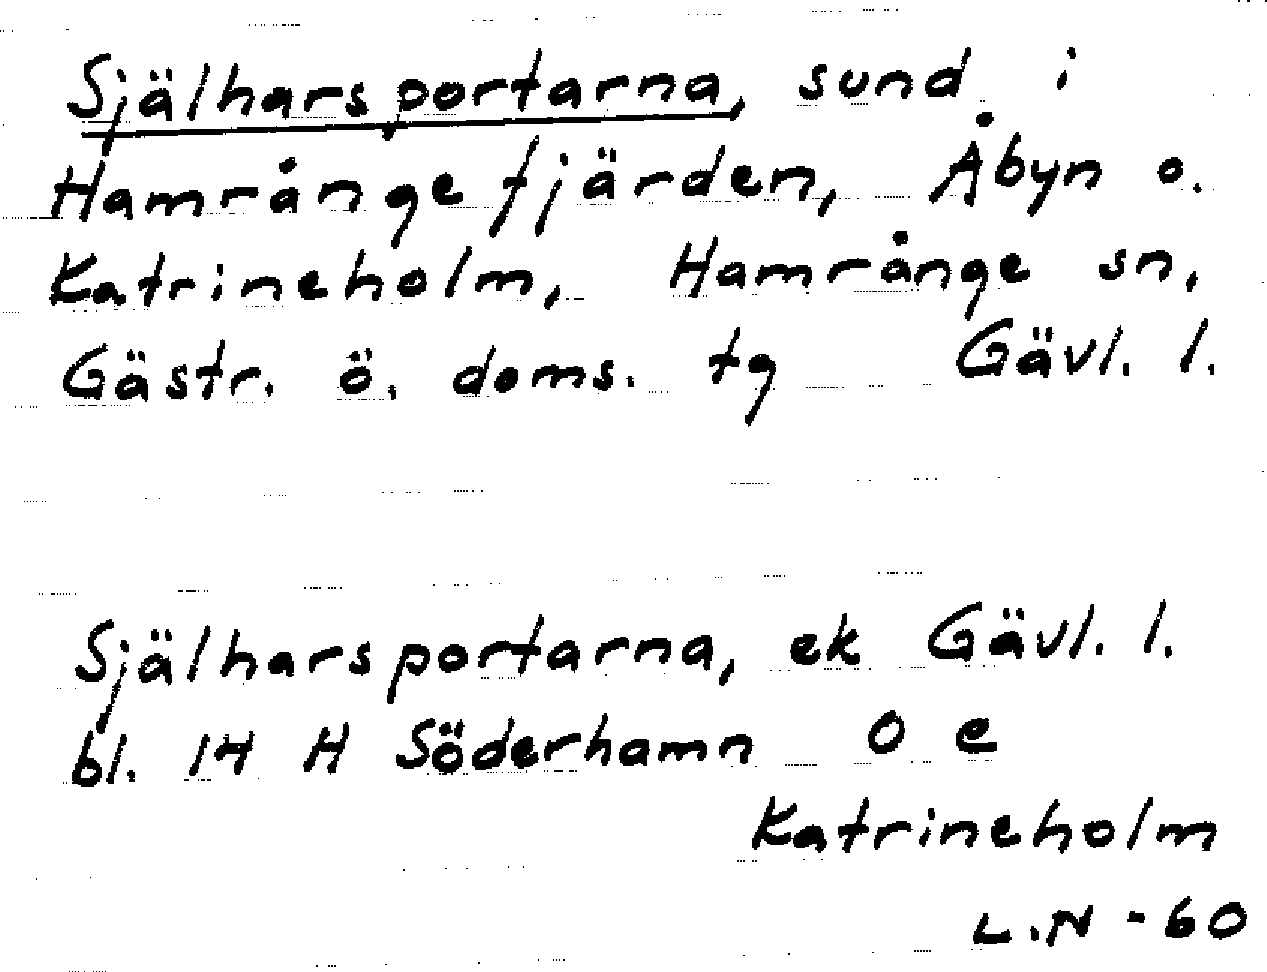 Själharsportarna, sund i
Hamrångefjärden, Åbyn o.
Katrineholm, Hamrånge sn,
Gästr. ö. doms. tg Gävl. l.
Själharsportarna, ek Gävl. l.
bl. 14 H Söderhamn 0 e
Katrineholm
L.N -60